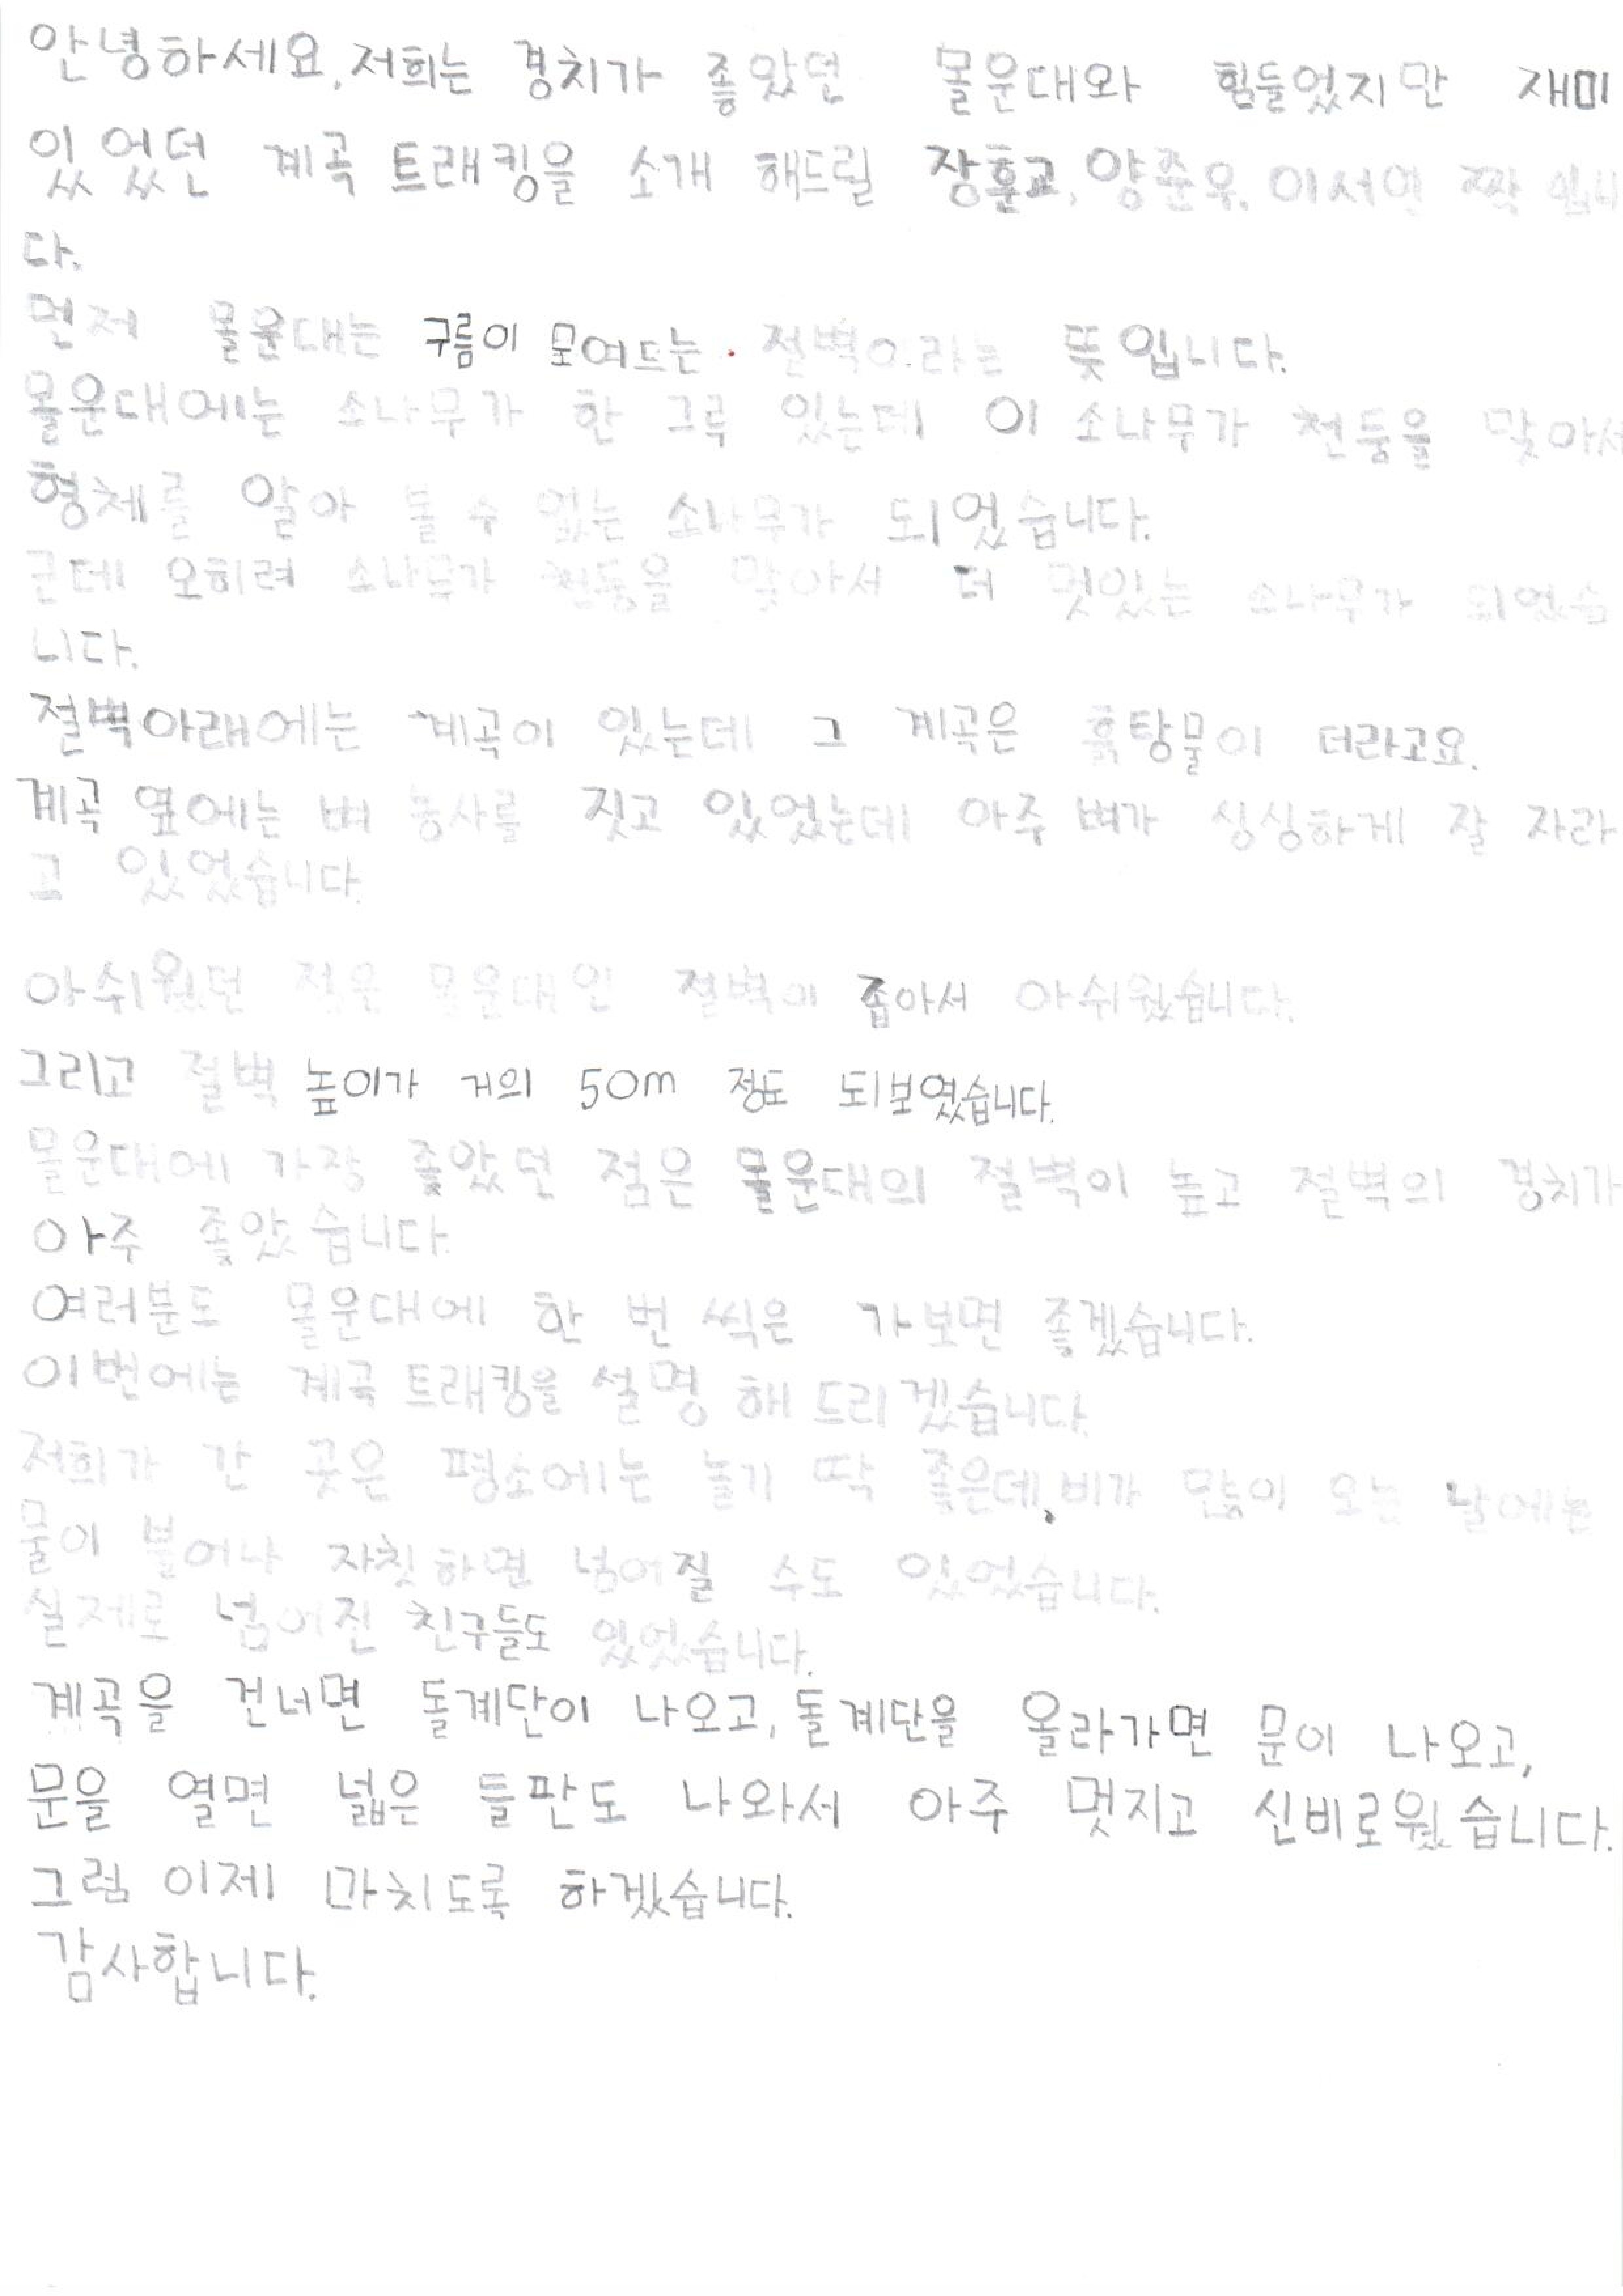 안녕하세요. 저희는 경치가 좋았던 몰운대와 힘들었지만 재미
있었던 계곡 트래킹을 소개 해드릴 장훈교, 양준우, 이서연 짝 입니
다.
먼저 몰운대는 구름이 모여드는 절벽이라는 뜻입니다.
몰운대에는 소나무가 한 그루 있는데 이 소나무가 천둥을 맞아서
형체를 알아 볼 수 없는 소나무가 되었습니다.
근데 오히려 소나무가 천둥을 맞아서 더 멋있는 소나무가 되었습
니다.
절벽아래에는 계곡이 있는데 그 계곡은 흙탕물이 더라고요.
계곡 옆에는 벼 농사를 짓고 있었는데 아주 벼가 싱싱하게 잘 자라
고 있었습니다.
아쉬웠던 점은 몰운대인 절벽이 좁아서 아쉬웠습니다.
그리고 절벽 높이가 거의 50m 정도 되보였습니다.
몰운대에 가장 좋았던 점은 몰운대의 절벽이 높고 절벽의 경치가
아주 좋았습니다.
여러분도 몰운대에 한 번 씩은 가보면 좋겠습니다.
이번에는 계곡 트래킹을 설명 해 드리겠습니다.
저희가 간 곳은 평소에는 놀기 딱 좋은데, 비가 많이 오는 날에는
물이 불어나 자칫하면 넘어질 수도 있었습니다.
실제로 넘어진 친구들도 있었습니다.
계곡을 건너면 돌계단이 나오고, 돌계단을 올라가면 문이 나오고,
문을 열면 넓은 들판도 나와서 아주 멋지고 신비로웠습니다.
그럼 이제 마치도록 하겠습니다.
감사합니다.